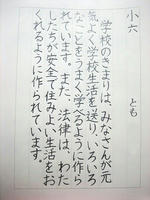 小六　とも
学校のきまりは、みなさんが元
気よく学校生活を送り、いろいろ
なことをうまく学べるように作ら
れています。また、法律は、わた
したちが安全で住みよい生活をお
くれるように作られています。